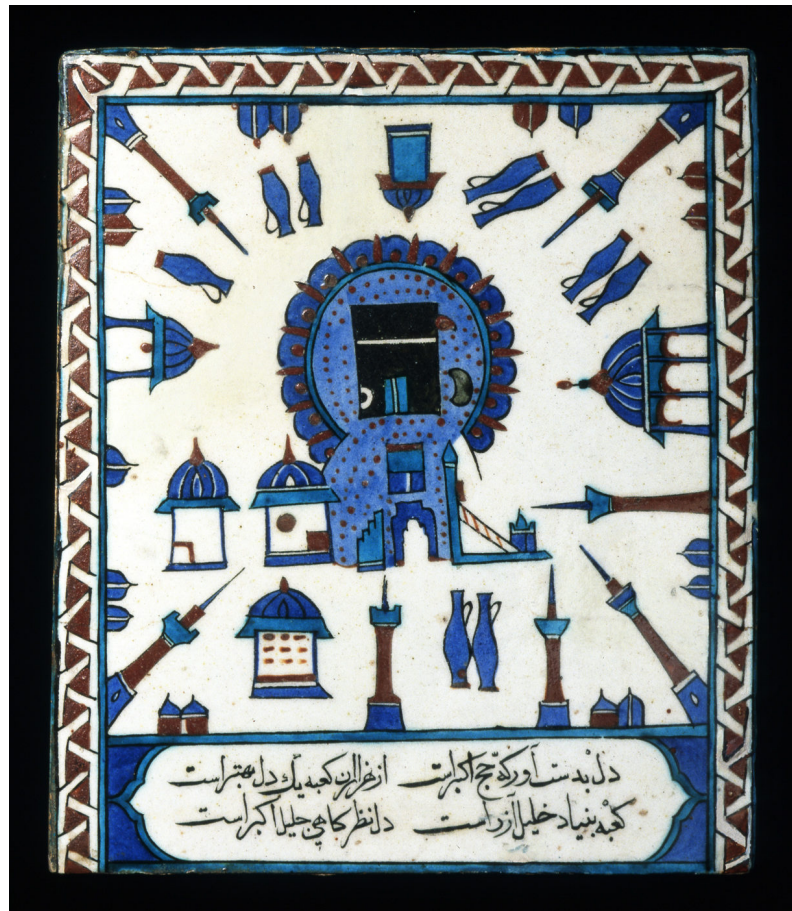 دل بدست آور که حج اکبراست از هزاران کعبه یك دل بهتراست
کعبه بنیاد خلیل آزراست دل نظر کاهی جلیل اکبراست